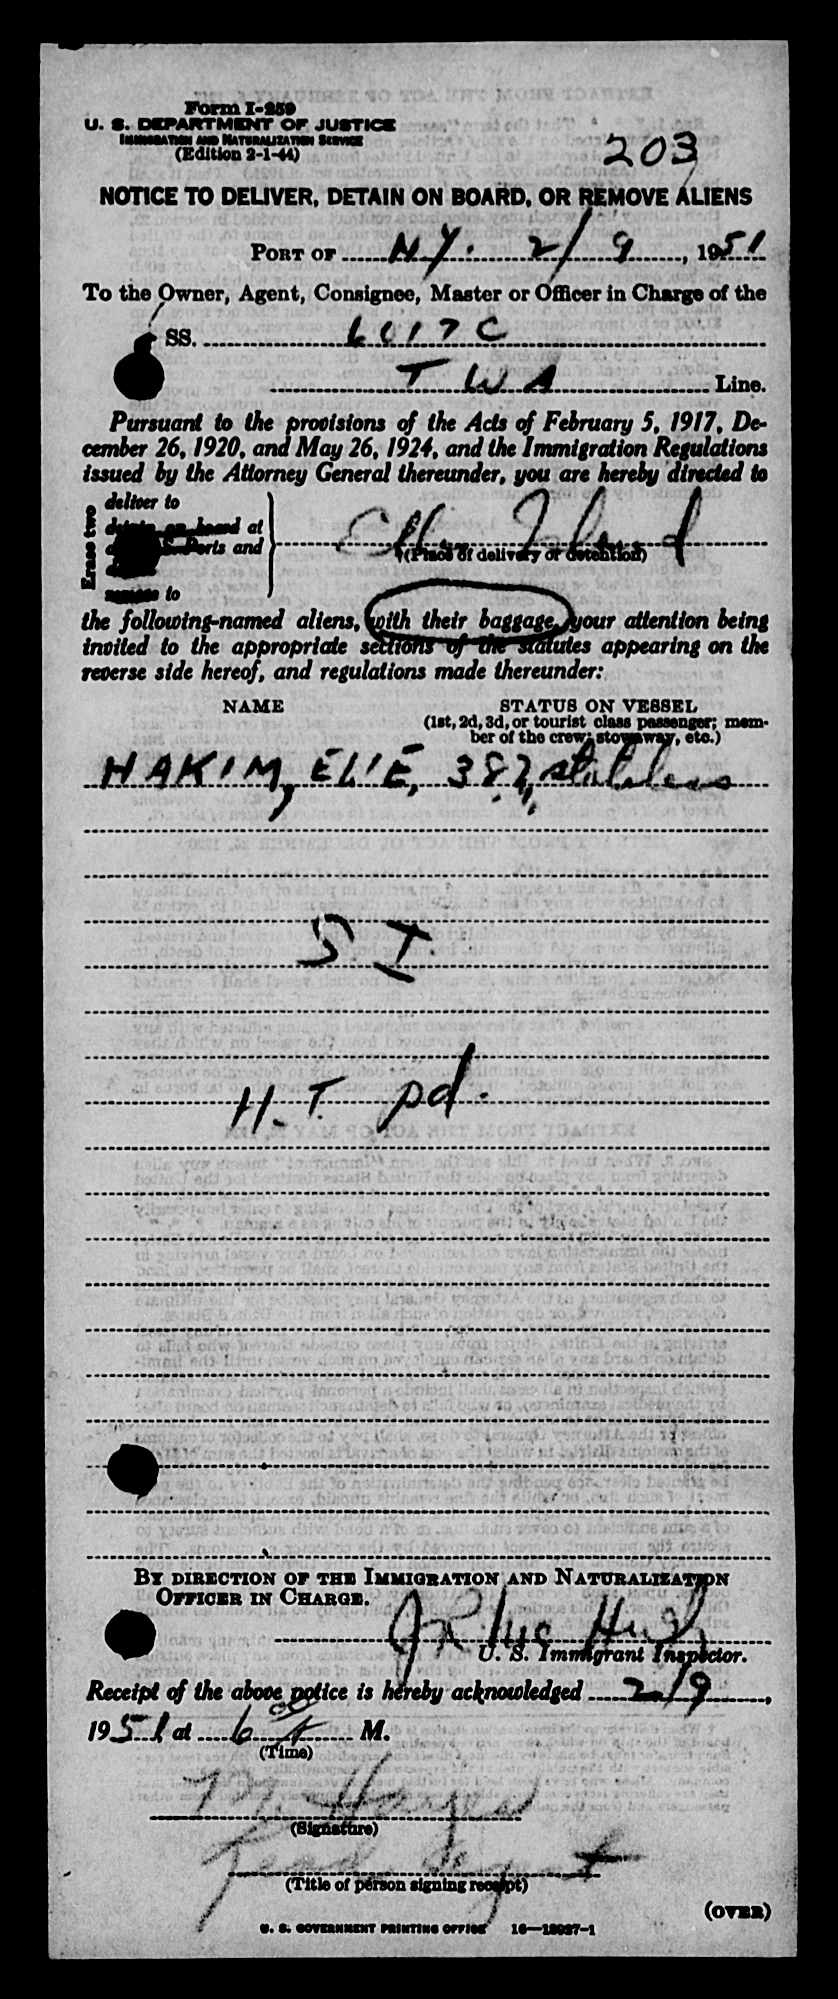 Form I-259
U. S. DEPARTMENT OF JUSTICE
IMMIGRATION AND NATURALIZATION SERVICE
(Edition 2-1-44)
203
NOTICE TO DELIVER, DETAIN ON BOARD, OR REMOVE ALIENS
PORT OF N.Y. 2/9, 1951
To the Owner, Agent, Consignee, Master or Officer in Charge of the
SS. 6017C
TWA Line.
Pursuant to the provisions of the Acts of February 5, 1917, De-
cember 26, 1920, and May 26, 1924, and the Immigration Regulations
issued by the Attorney General thereunder, you are hereby directed to
Erase two
deliver to
detain on board at
Ports and
Ellis Island
(Place of delivery or detention)
remove to
the following-named aliens, with their baggage, your attention being
invited to the appropriate sections of the statutes appearing on the
reverse side hereof, and regulations made thereunder:
NAME STATUS ON VESSEL
(1st, 2d, 3d, or tourist class passenger; mem-
ber of the crew; stowaway, etc.)
HAKIM, ELIE, 38, stateless
S I.
H.T. pd.
BY DIRECTION OF THE IMMIGRATION AND NATURALIZATION
OFFICER IN CHARGE.
U. S. Immigrant Inspector.
Receipt of the above notice is hereby acknowledged 2/9,
1951 at 6 00 A M.
(Time)
M. Hayes
(Signature)
(Title of person signing receipt)
(OVER)
U. S. GOVERNMENT PRINTING OFFICE 16—18027-1